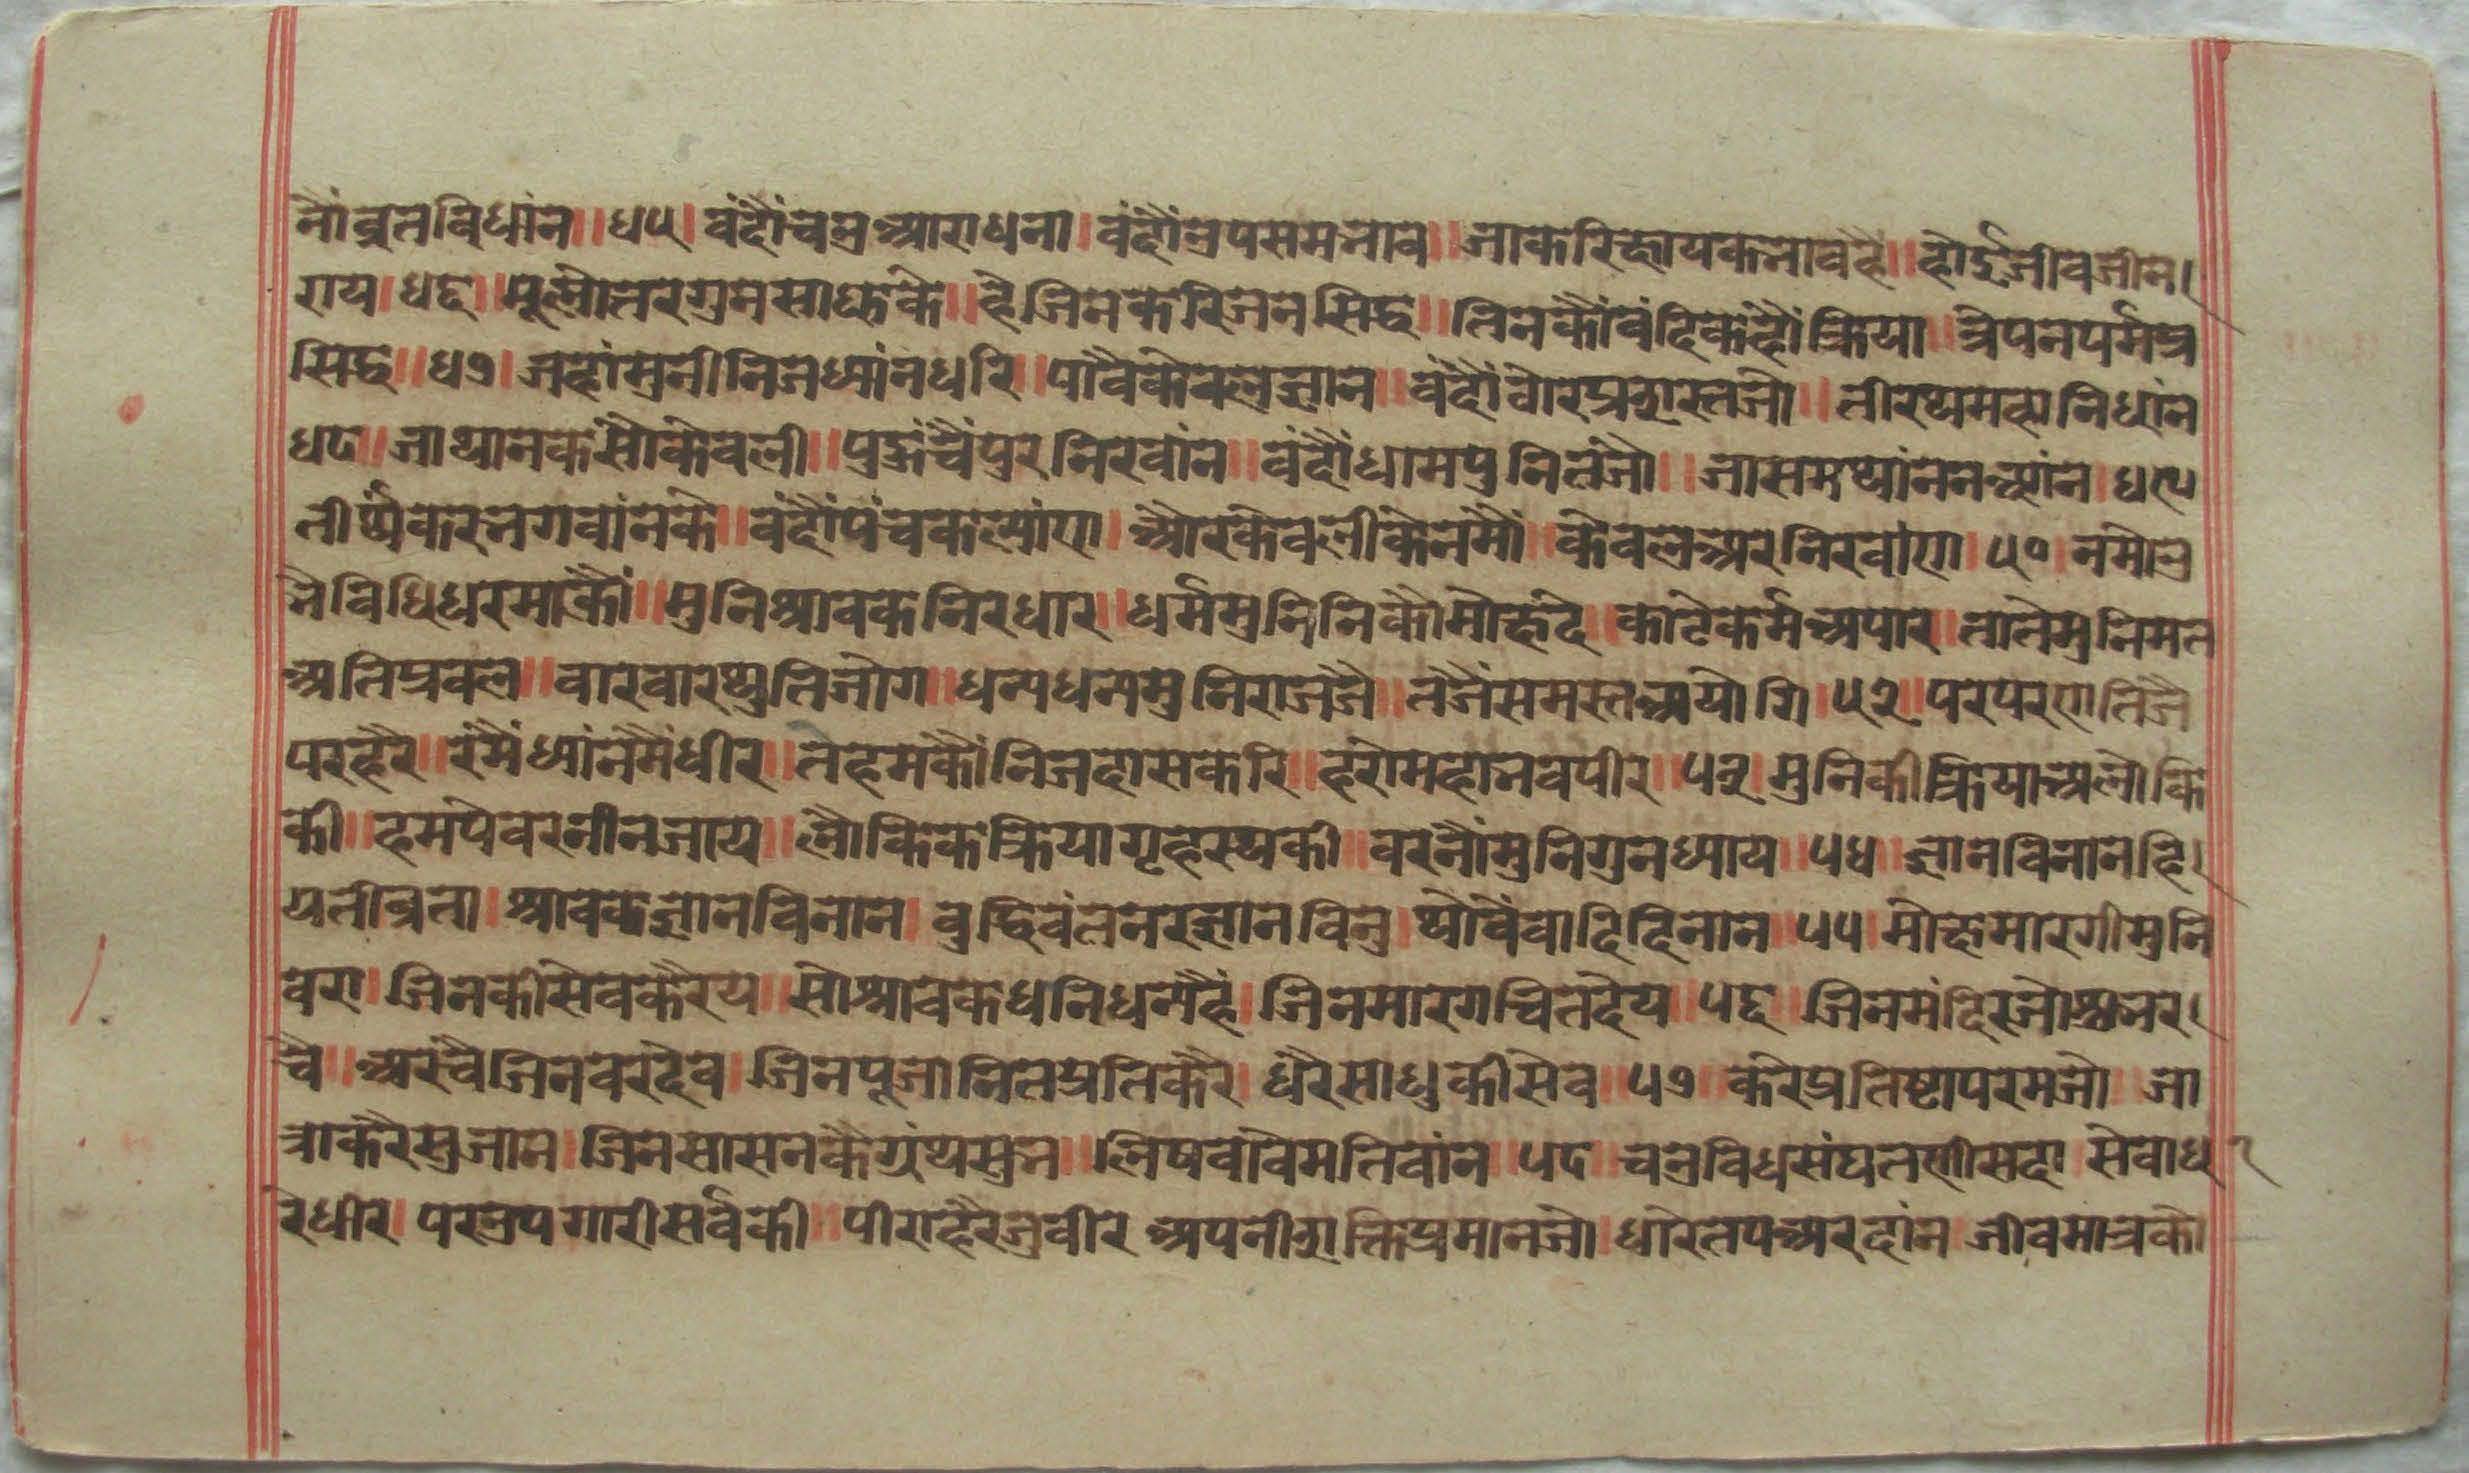 नौं व्रत विधांन ॥ ४५ । वंदौं चउ आराधना । वंदौं उपसम भाव ॥ जाकरि क्षायक भाव ह्वै ॥ होई जीव जीन।
राय । ४६ ॥ मूलोतर गुन साधुके ॥ ह्वै जिन करि जन सिद्ध ॥ तिनकौं वंदि कहौं क्रिया ॥ त्रेपन पर्म प्र
सिद्ध ॥ ४७ । जहां मुनी निज ध्यांन धरि ॥ पावै केवल ज्ञान ॥ वंदौं वोर प्रशस्त जो ॥ तीरथ महा निधांन
४८ ॥ जा थानक सौ केवली ॥ पहुंचै पुर निरवांन ॥ वंदौं धाम पुनित जो ॥ जा सम थांन न आंन । ४९
तीर्थंकर भगवांन के ॥ वंदौं पंच कल्यांण । और केवली कै नमौं ॥ केवल अर निरवांण । ५० । नमो उ
भै विधि धरमकौं ॥ मुनि श्रावक निरधार ॥ धर्म मुनिनिकौ मोक्ष दे ॥ काटै कर्म अपार ॥ तातै मुनि मत
अति प्रवल ॥ वार वार थुति जोग ॥ धन्य धन्य मुनिराज जै ॥ तजैं समस्त अयोगि । ५२ ॥ पर परणति जै
परहरै ॥ रमैं ध्यांन मैं धीर ॥ ते हमकौं निज दास करि ॥ हरौ महा भव पीर ॥ ५३ । मुनि की क्रिया अलोकि
की ॥ हमपै वरनी न जाय ॥ लौकिक क्रिया गृहस्थ की ॥ वरनौं मुनि गुन ध्याय ॥ ५४ ॥ ज्ञान विना नहि।
यती व्रता । श्रावक ज्ञान विना न । वुद्धिवंत नर ज्ञान विनु । षोवैं वादि दिनान ॥ ५५ । मोक्ष मारगी मुनि
वरा । जिनकी सेव करेय ॥ सो श्रावक धनि धन्य है । जिन मारग चित देय ॥ ५६ ॥ जिन मंदिर जो शुभ र।
चै ॥ अरचै जिनवर देव । जिन पूजा नित प्रति करै । धरै साधु की सेव ॥ ५७ ॥ करै प्रतिष्टा परम जो ॥ जा
त्रा करै सुजान । जिन सासन कै ग्रंथ सुभ ॥ लिषवावै मतिवांन ॥ ५८ ॥ चउविध संघ तणी सदा । सेवा ध
रै धीर । पर उपगारी सर्व की ॥ पीरा हरै जु वीर अपनी शक्ति प्रमान जो । धारै तप अर दांन । जीव मात्र को